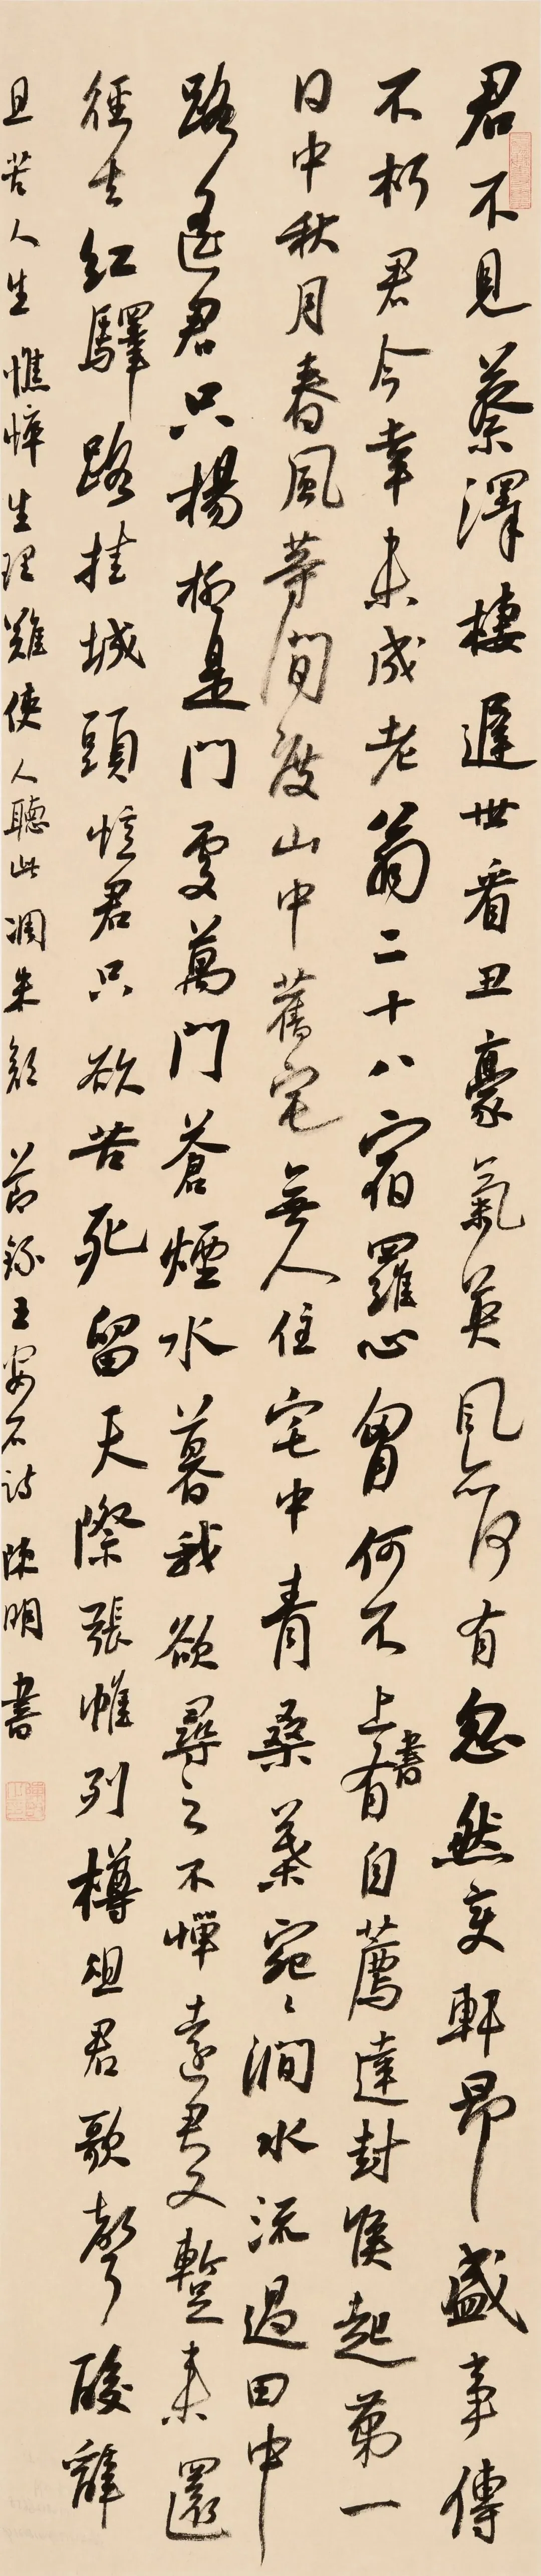 君不見蔡澤棲遲世看丑豪氣英風亦何有忽然变軒昂盛事傳
不朽君今幸未成老翁二十八宿羅心胷何不上書有自薦達封侯起第一
日中秋月春風等閒度山中舊宅無人住宅中青桑葉宛宛澗水流過田中
路遙君只楊柳是門處萬門蒼煙水暮我欲尋之不憚遠君又暫来還
徑去紅驛路挂城頭憶君只欲苦死留天際張帷列樽俎君歌聲酸辭
且苦人生憔悴生理難使人聽此凋朱顏 節錄王安石詩 陳明書